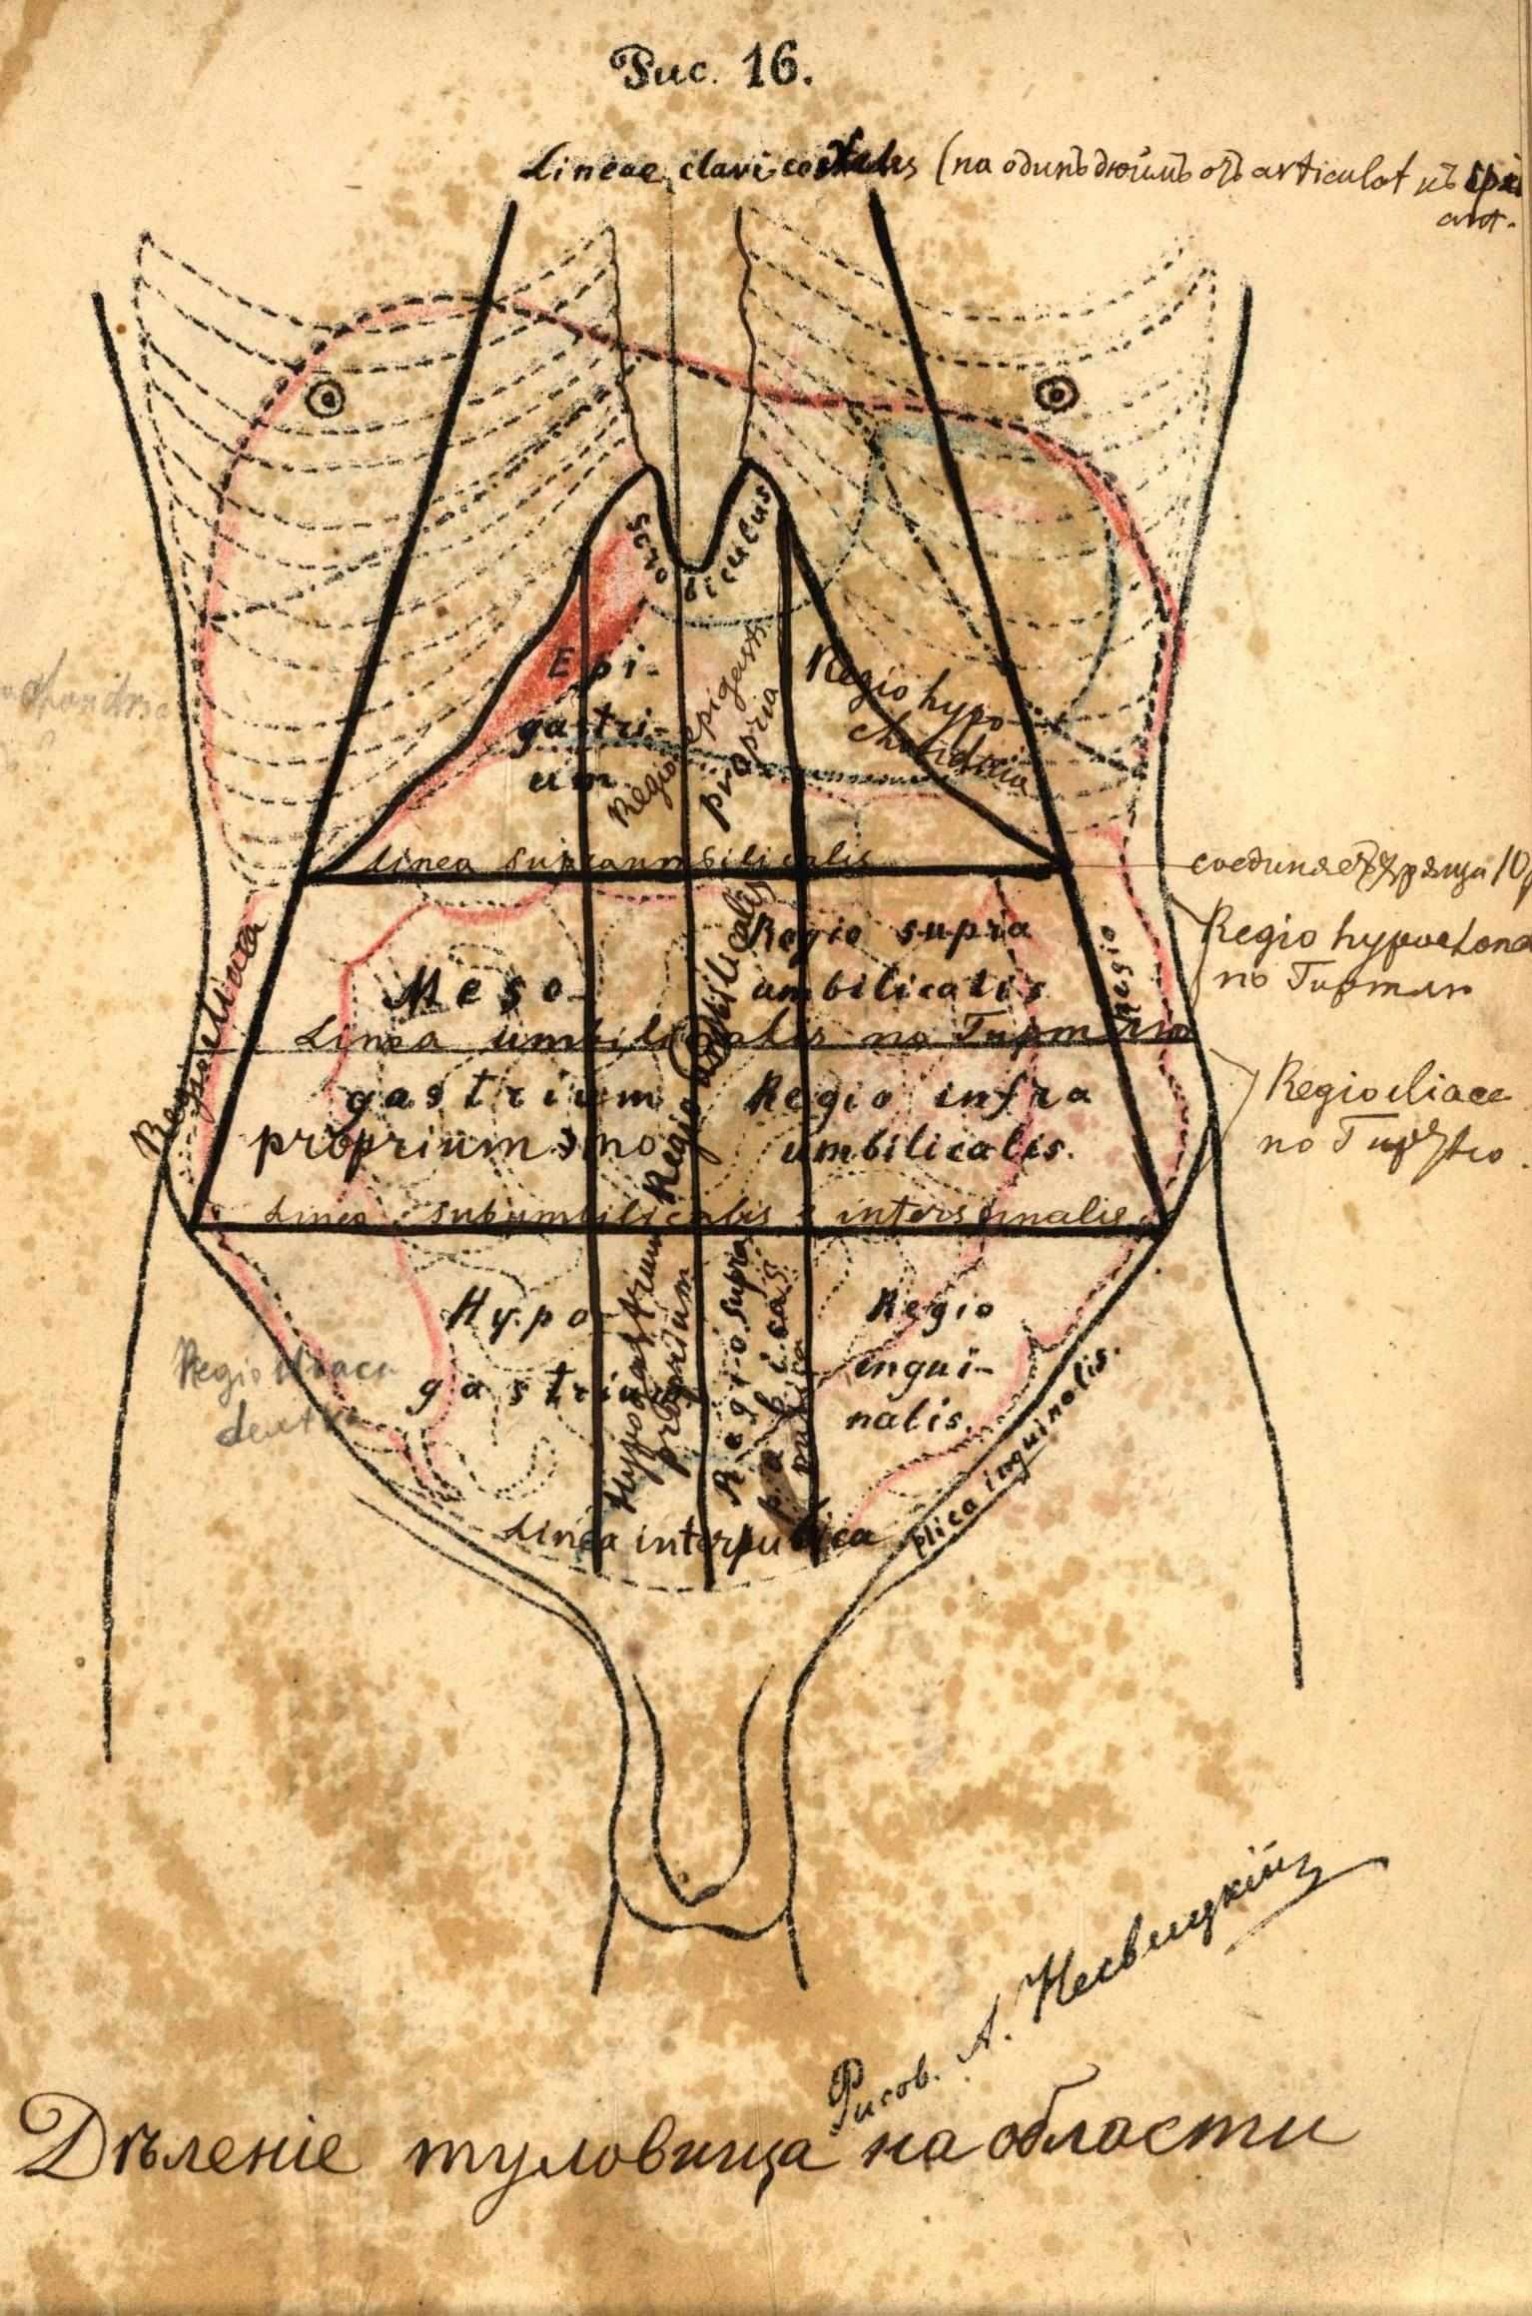 Рис. 16.
Lineae clavicostales (на одинъ дюймъ отъ articulat къ
ant.
Scrobiculus
Epi-
gastri-
um
Regio epigastr.
propria
Regio hypo-
chondriia
Linea supraumbilicalis
соединяетъ хряща 10
Regio hypochond
по Гиртлю
Regio iliaca
Regio
Meso-
gastrium
proprium
Regio umbilicalis
Regio supra
umbilicalis
Linea umbilicalis по Гиртлю
Regio infra
umbilicalis.
Regio iliaca
по Гиртлю.
Linea subumbilicalis s interspinalis
Hypo-
gastrium
Hypogastrium
proprium
Regio supra
pubica s.
pubica
Regio
ingui-
nalis
Regio iliaca
dextra
Linea interpubica
plica inguinalis.
Рисов. А. Несвицкій
Дѣленіе туловища на области